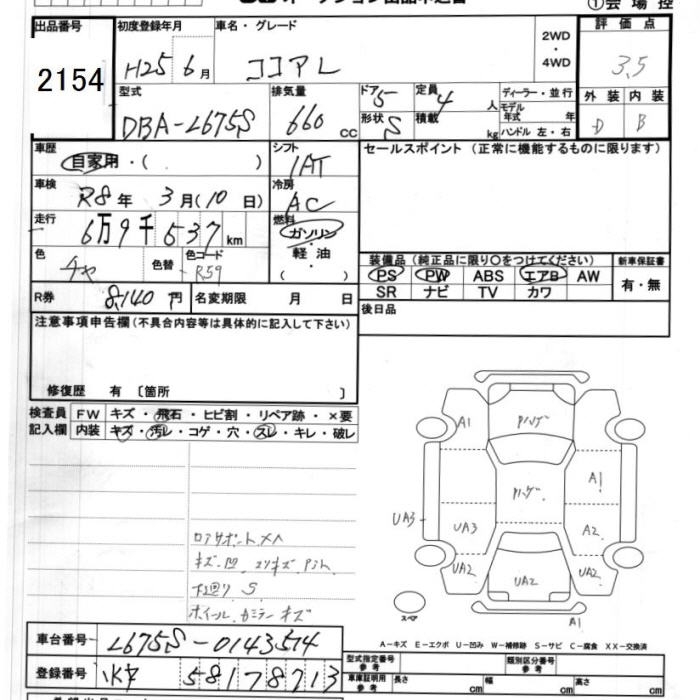 出品番号 2154
初度登録年月 H25年6月
車名・グレード ココアL
2WD・4WD
評価点 3.5
外装 D 内装 B
型式 DBA-L675S
排気量 660 CC
ドア 5
形状 S
定員 4人
積載 kg
ディーラー・並行
モデル年式 年
ハンドル 左・右
車歴 自家用・( )
シフト IAT
車検 R8年3月(10日)
冷房 AC
走行 6万9千537km
燃料 ガソリン・軽油 ( )
色 チャ 色替 色コード R59
R券 8,140円 名変期限 月 日
セールスポイント (正常に機能するものに限ります)
装備品(純正品に限り○をつけてください)
PS PW ABS エアB AW
SR ナビ TV カワ
新車保証書 有・無
後日品
注意事項申告欄(不具合内容等は具体的に記入して下さい)
修復歴 有 〔箇所 〕
検査員記入欄
FW キズ・飛石・ヒビ割・リペア跡・×要
内装 キズ・汚レ・コゲ・穴・スレ・キレ・破レ
キズ・凹
下廻り S
A1
ハゲ
ハゲ
A1
UA3
UA3
A2
UA2
UA2
UA2
A1
スペア
A-キズ E-エクボ U-凹み W-補修跡 S-サビ C-腐食 XX-交換済
車台番号 L675S-0143574
登録番号 58178713
型式指定番号 参考
類別区分番号 参考
車庫証明用 参考 長さ cm 幅 cm 高さ cm